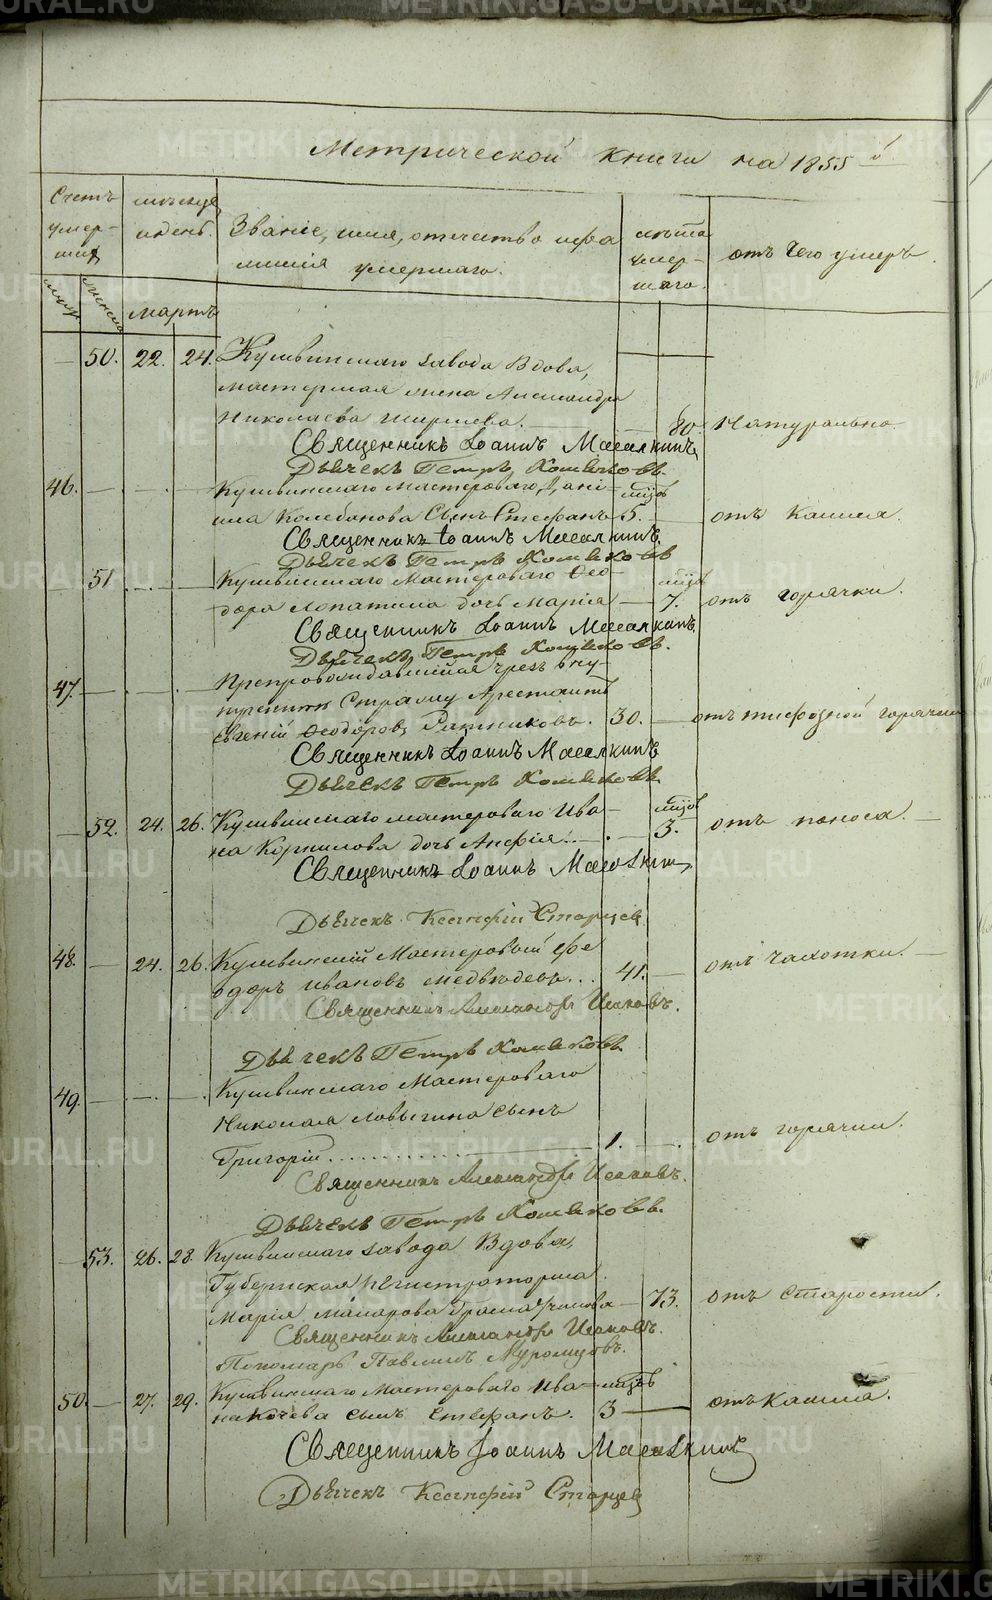 METRIKI.GASO-URAL.RU
Метрической книги на 1855 й
Счетъ умершихъ
месяцъ и день
Званіе, имя, отчество и фамилія умершаго.
лѣта умершаго.
отъ чего умеръ.
муж. женска
мартъ
50. 22. 24. Кушвинскаго завода Вдова,
мастерская жена Александра
Николаева Ширяева. 80. Натурально
Священникъ Іоаннъ
Дьячекъ Петръ
46. Кушвинскаго мастероваго
Колебанова Сынъ Стефанъ мцов 5. отъ Кашля.
Священникъ Іоаннъ
Дьячекъ Петръ
51 Кушвинскаго Мастероваго Ѳео-
дора Лопатина дочь Марія мцов 7. отъ горячки.
Священникъ Іоаннъ
Дьячекъ Петръ
47. Препровождавшійся чрезъ вну-
треннюю Стражу Арестантъ
Евгеній Ѳеодоровъ Ратниковъ. 30. отъ тифозной горячки
Священникъ Іоаннъ
Дьячекъ Петръ
52. 24. 26. Кушвинскаго мастероваго Ива-
на Корнилова дочь Анфія. мцов 3. отъ поноса.
Священникъ Іоаннъ
Дьячекъ Ксенофій Старцев
48. 24. 26. Кушвинскій Мастеровый Фе
одоръ Ивановъ Медвѣдевъ. 41. отъ чахотки.
Священникъ Александръ Исаковъ.
Дьячекъ Петръ
49. Кушвинскаго Мастероваго
Николая Ловыгина сынъ
Григорій 1. отъ горячки.
Священникъ Александръ Исаковъ.
Дьячекъ Петръ
53. 26. 28. Кушвинскаго завода Вдова,
Губернская регистраторша
Марія Макарова 73. отъ Старости.
Священникъ Александръ Исаковъ.
Пономарь Павлинъ Муромцовъ.
50. 27. 29. Кушвинскаго Мастероваго Ива-
на сынъ Стефанъ. мцов 3 отъ Кашля.
Священникъ Іоаннъ
Дьячекъ Ксенофій Старцев